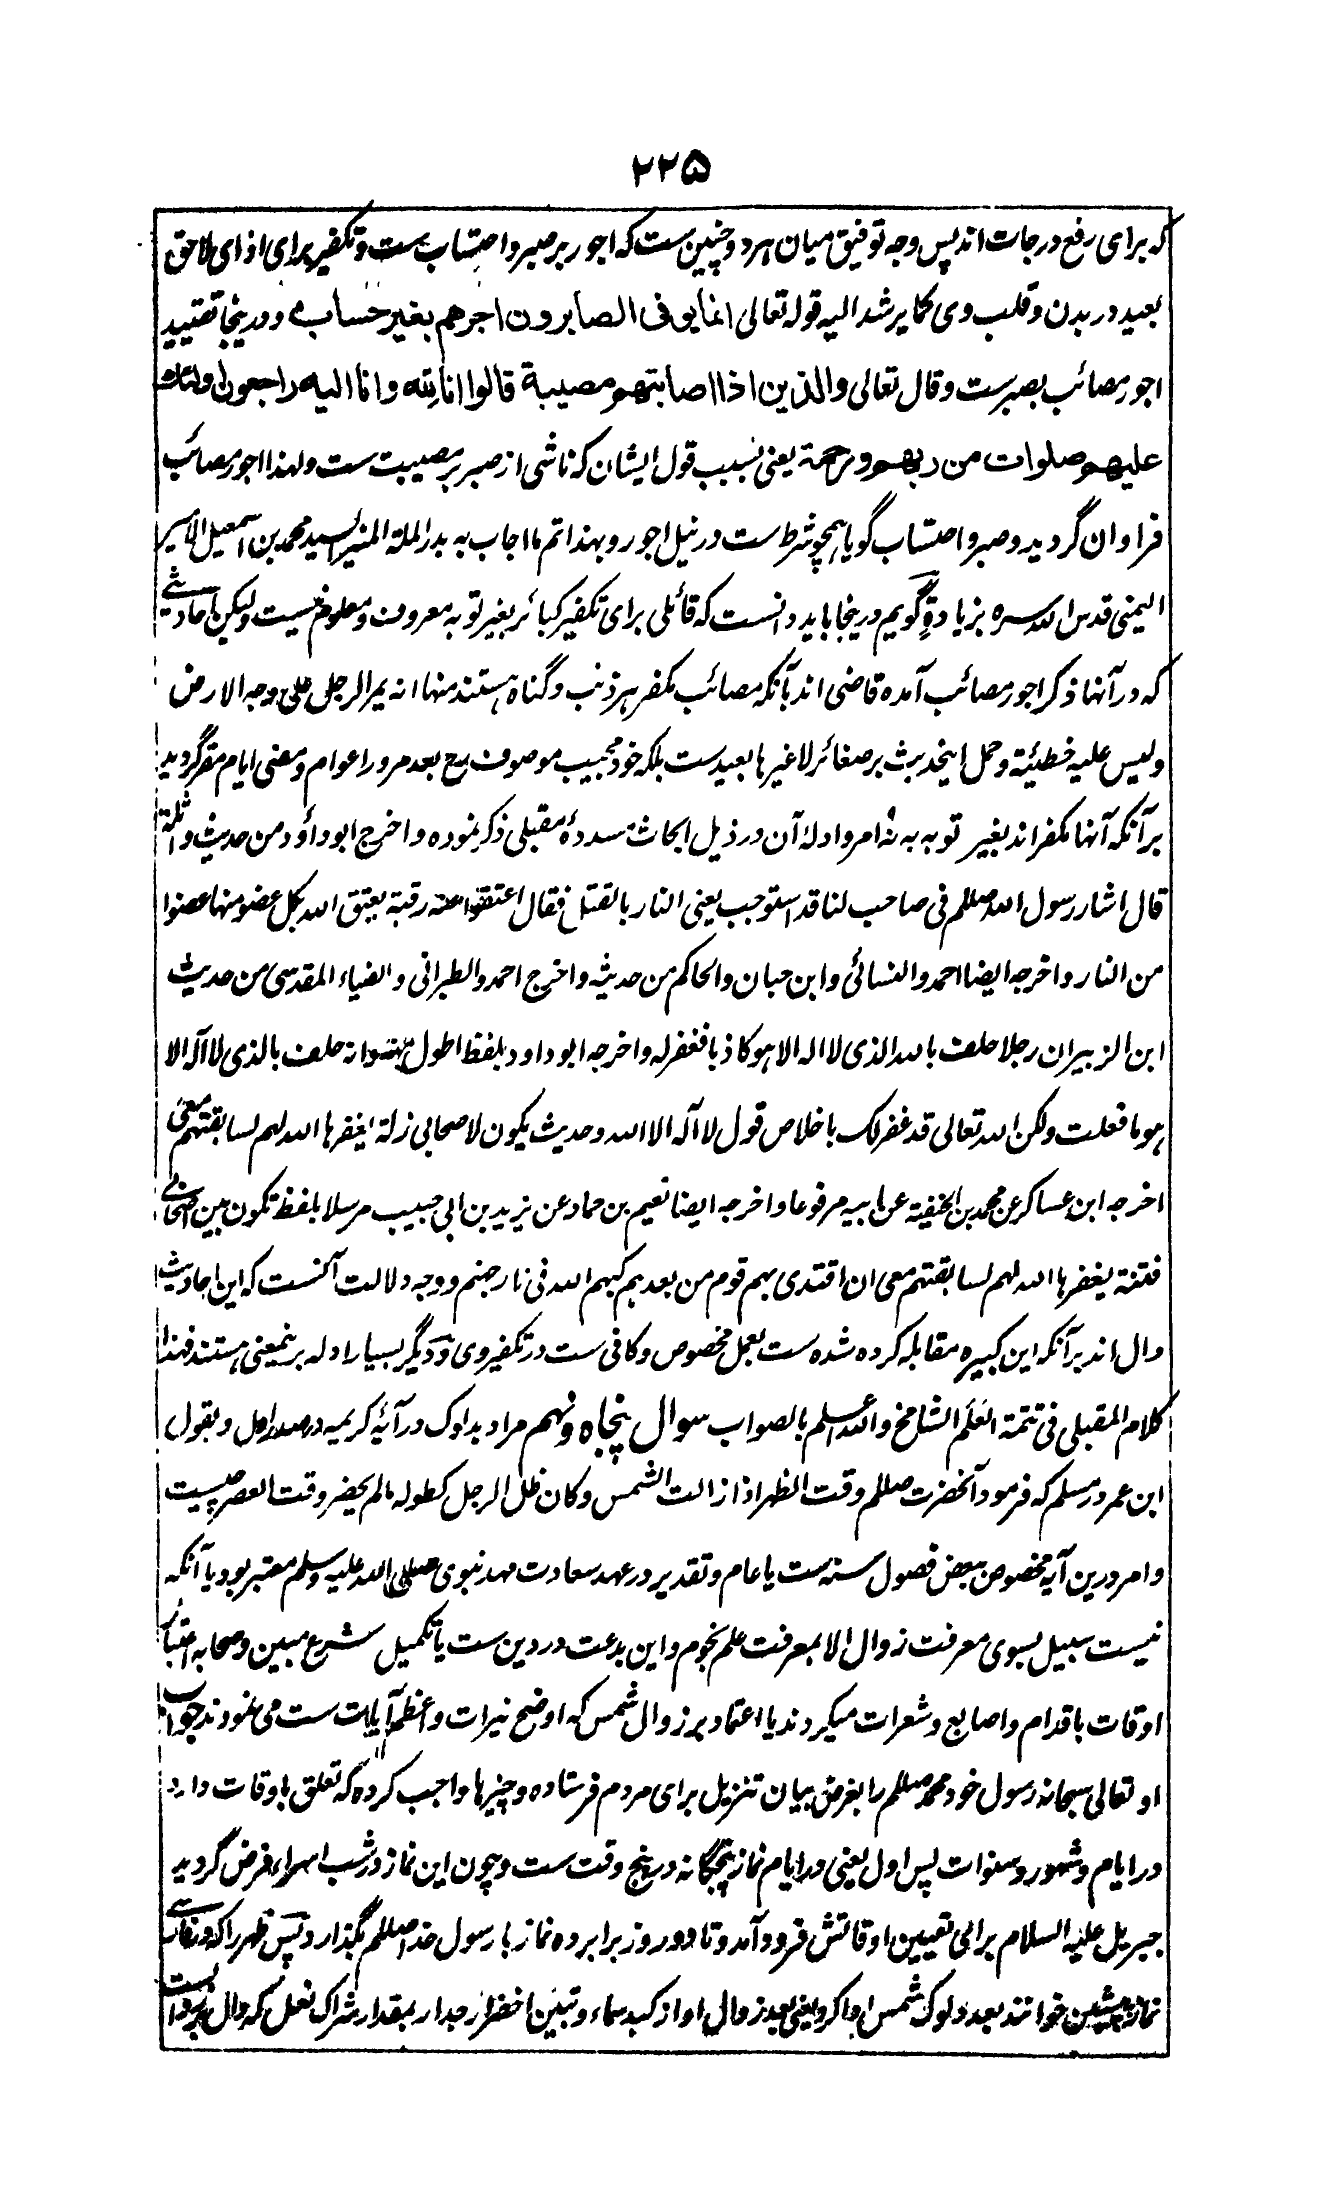 ۲۲۵
که برای رفع درجات اند پس وجه توفیق میان هر دو چنین ست که اجور بر صبر و احتساب ست و تکفیر برای اذای لاحق
بعید در بدن و قلب وی کما یرشد الیه قوله تعالی انما یوفی الصابرون اجرهم بغیر حساب ه و درینجا تقیید
اجور مصائب بصبر ست و قال تعالی والذین اذا اصابتهم مصیبة قالوا انا لله وانا الیه راجعون اولئك
علیهم صلوات من ربهم ورحمة یعنی بسبب قول ایشان که ناشی از صبر بر مصیبت ست ولهذا اجور مصائب
فراوان گردید و صبر و احتساب گویا همچو شرط ست در نیل اجور و بهذا تم ما اجاب به بدر الملة المنیر السید محمد بن اسمعیل الامیر
الیمنی قدس الله سره بزیادة گویم درینجا باید دانست که قائلی برای تکفیر کبائر بغیر توبه معروف و معلوم نیست ولیکن احادیثے
که در آنها ذکر اجور مصائب آمده قاضی اند بآنکه مصائب مکفر هر ذنب و گناه هستند منها انه یمر الرجل علی وجه الارض
ولیس علیه خطیئة و حمل اینحدیث بر صغائر لا غیرها بعید ست بلکه خود مجیب موصوف رح بعد مرور اعوام و مضی ایام مقر گردید
بر آنکه آنها مکفر اند بغیر توبه به نه امر و ادلهٔ آن در ذیل ابحاث مسددهٔ مقبلی ذکر نموده و اخرج ابوداؤد من حدیث واثلة
قال اشار رسول الله صللم فی صاحب لنا قد استوجب یعنی النار بالقتل فقال اعتقوا عنه رقبة یعتق الله بکل عضو منها عضوا
من النار و اخرجه ایضا احمد والنسائی وابن حبان والحاکم من حدیثه و اخرج احمد والطبرانی والضیاء المقدسی من حدیث
ابن الزبیر ان رجلا حلف بالله الذی لا اله الا هو کاذبا فغفر له و اخرجه ابوداود بلفظ اطول منه وانه حلف بالذی لا آله الا
هو ما فعلت ولکن الله تعالی قد غفر لک باخلاص قول لا آله الا الله و حدیث یکون لاصحابی زلة یغفرها الله لهم لسابقتهم معی
اخرجه ابن عساکر عن محمد بن الحنفیة عن ابیه مرفوعا و اخرجه ایضا نعیم بن حماد عن یزید بن ابی حبیب مرسلا بلفظ تکون بین اصحابی
فتنة یغفرها الله لهم لسابقتهم معی ان اقتدی بهم قوم من بعدهم کبهم الله فی نار جهنم و وجه دلالت آنست که این احادیث
دال اند بر آنکه این کبیره مقابله کرده شده ست بعمل مخصوص و کافی ست در تکفیر وی و دیگر بسیار ادله برینمعنی هستند فهذا
کلام المقبلی فی تتمة العلم الشامخ والله اعلم بالصواب سوال پنجاه و نهم مراد بدلوک در آیهٔ کریمه در صدر اول و بقول
ابن عمر در مسلم که فرمود آنحضرت صللم وقت الظهر اذا زالت الشمس وکان ظل الرجل کطوله ما لم یحضر وقت العصر چیست
و امر درین آیه مخصوص ببعض فصول سنه ست یا عام و تقدیر در عهد سعادت مهد نبوی صلی الله علیه وسلم معتبر بود یا آنکه
نیست سبیل بسوی معرفت زوال الا بمعرفت علم نجوم و این بدعت در دین ست یا تکمیل شرع مبین و صحابه اعتبار
اوقات باقدام و اصابع و شعرات میکردند یا اعتماد بر زوال شمس که اوضح نیرات و اعظم آیات ست می نمودند جواب
او تعالی سبحانه رسول خود محمد صللم را بغرض بیان تنزیل برای مردم فرستاده و چیزها واجب کرده که تعلق باوقات دارد
در ایام و شهور و سنوات پس اول یعنی در ایام نماز پنجگانه در پنج وقت ست و چون این نماز در شب اسراء فرض گردید
جبریل علیه السلام برای تعیین اوقاتش فرود آمد و تا دو روز برابر ده نماز با رسول خدا صللم بگذارد پس ظهر را که در فارسی
نماز پیشین خوانند بعد دلوک شمس ادا کرد یعنی بعد زوال او از کبد سماء و تبین اخضرار جدار بمقدار شراک نعل که دال